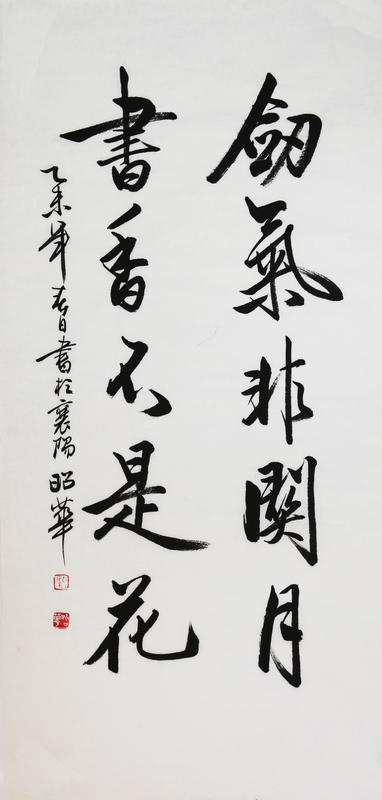 劒氣非關月
書香不是花
乙未年春日書於襄陽昭華